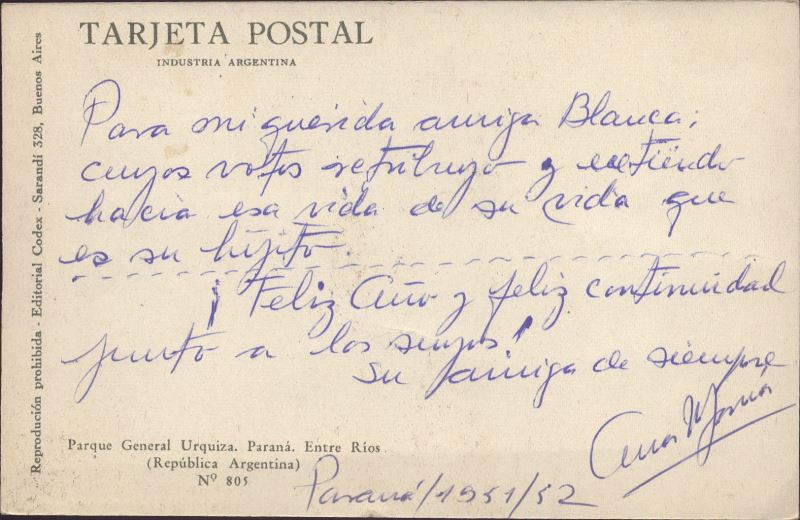 TARJETA POSTAL
INDUSTRIA ARGENTINA
Para mi querida amiga Blanca;
cuyos votos retribuyo y extiendo
hacia esa vida de su vida que
es su hijito.
¡Feliz Año y feliz continuidad
junto a los suyos!
su amiga de siempre
Ana María
Parque General Urquiza. Paraná. Entre Ríos
(República Argentina)
Nº 805
Paraná/1951/52
Reproducción prohibida - Editorial Codex - Sarandí 328, Buenos Aires